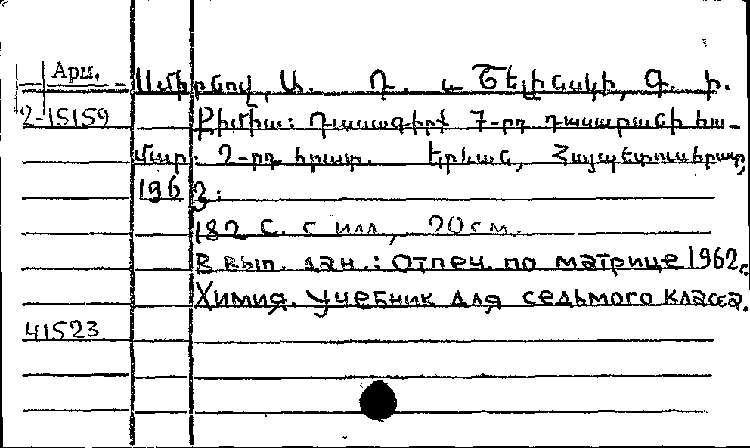 Арм.
Սմիրնով, Ա. Դ. և Շելինսկի, Գ. ի.
2-15159
Քիմիա: Դասագիրք 7-րդ դասարանի հա-
մար: 2-րդ հրատ. Երևան, Հայպետուսհրատ,
1963:
182 с. с илл, 20 см.
В вып. дан.: Отпеч. по матрице 1962 г.
Химия. Учебник для седьмого класса.
41523